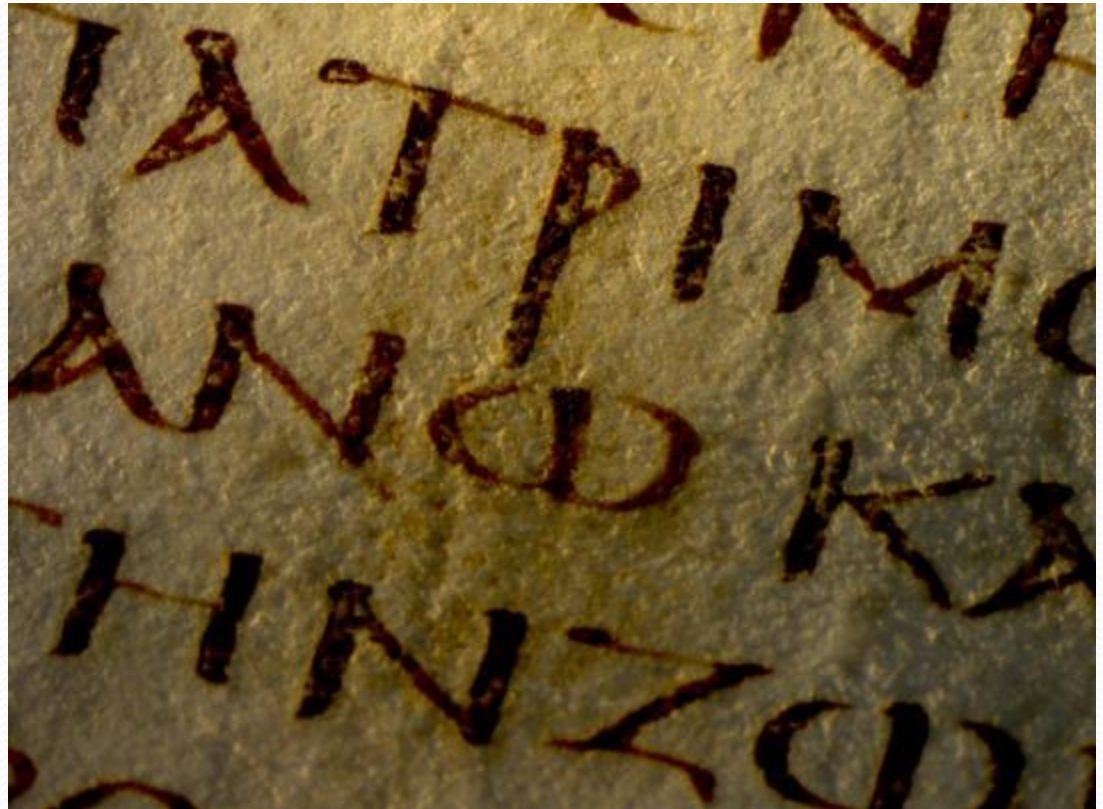 ΤΑΤΡΙΜΟ
ΑΝΩ ΚΑ
ΤΗΝΖΩ